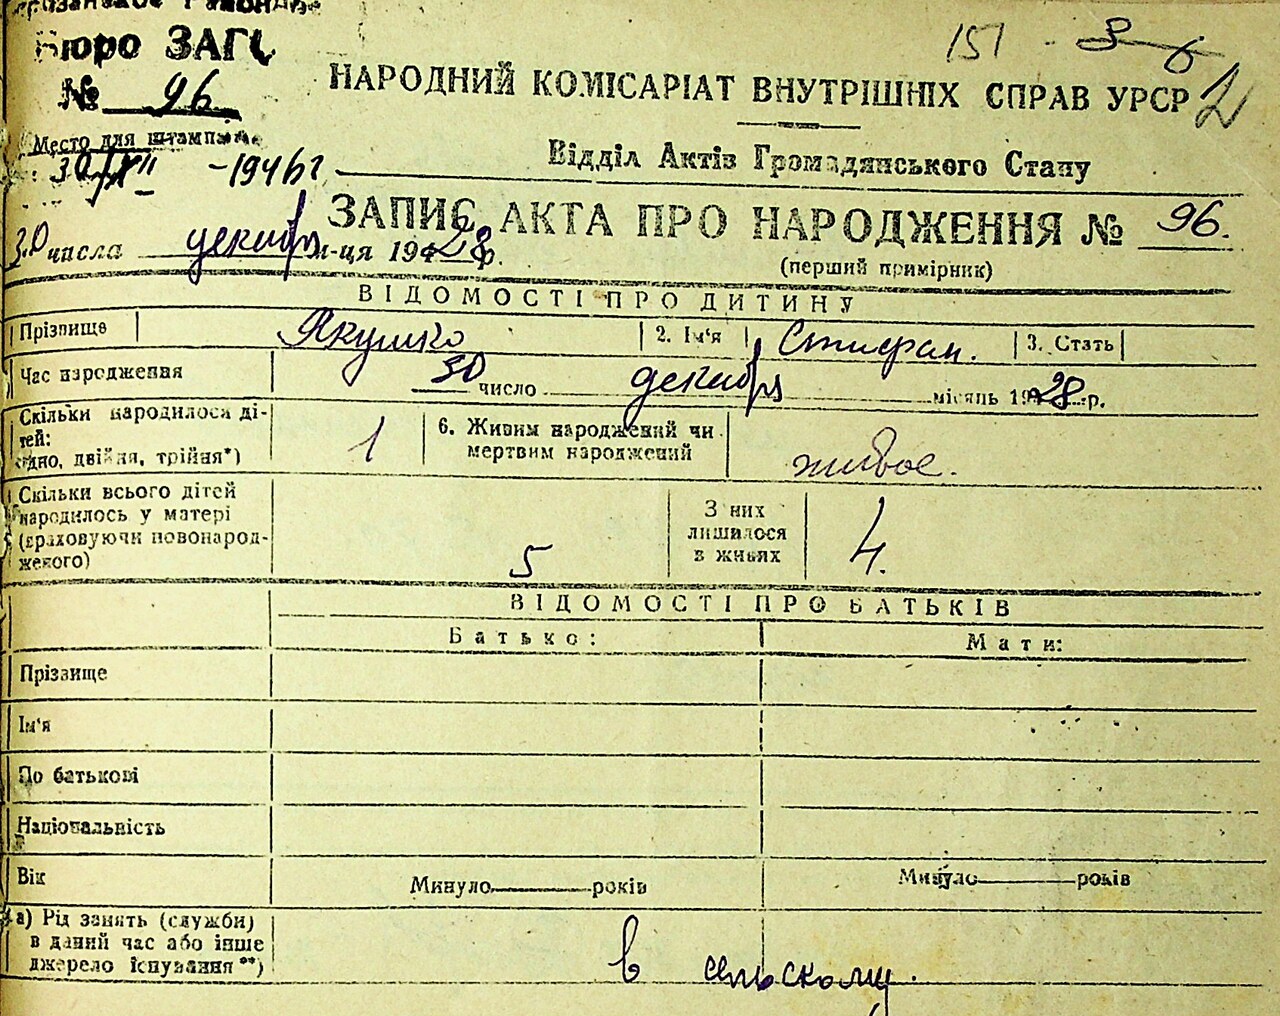 Бюро ЗАГС
№ 96
151 - 3
2
НАРОДНИЙ КОМІСАРІАТ ВНУТРІШНІХ СПРАВ УРСР
Место для штампа
30/XII - 1946г
Відділ Актів Громадянського Стану
ЗАПИС АКТА ПРО НАРОДЖЕННЯ № 96.
30 числа декабря м-ця 1928 р.
(перший примірник)
ВІДОМОСТІ ПРО ДИТИНУ
Прізвище Якушко 2. Ім'я Стифан. 3. Стать
Час народження 30 число декабря місяць 1928 р.
Скільки народилося ді-
тей:
одно, двійня, трійня*) 1 6. Живим народжений чи
мертвим народжений живое.
Скільки всього дітей
народилось у матері
(враховуючи новонарод-
женого) 5 З них
лишилося
в живих 4.
ВІДОМОСТІ ПРО БАТЬКІВ
Батько: Мати:
Прізвище
Ім'я
По батькові
Національність
Вік Минуло років Минуло років
а) Рід занять (служби)
в даний час або інше
джерело існування**) в сельскому.